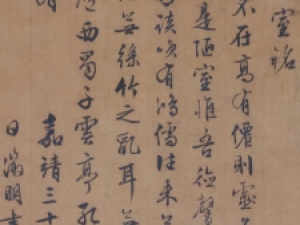 室銘
不在高有僊則靈
是陋室惟吾德馨
談咲有鴻儒往來無
無絲竹之亂耳無
廬西蜀子雲亭孔
嘉靖三十
日徵明書